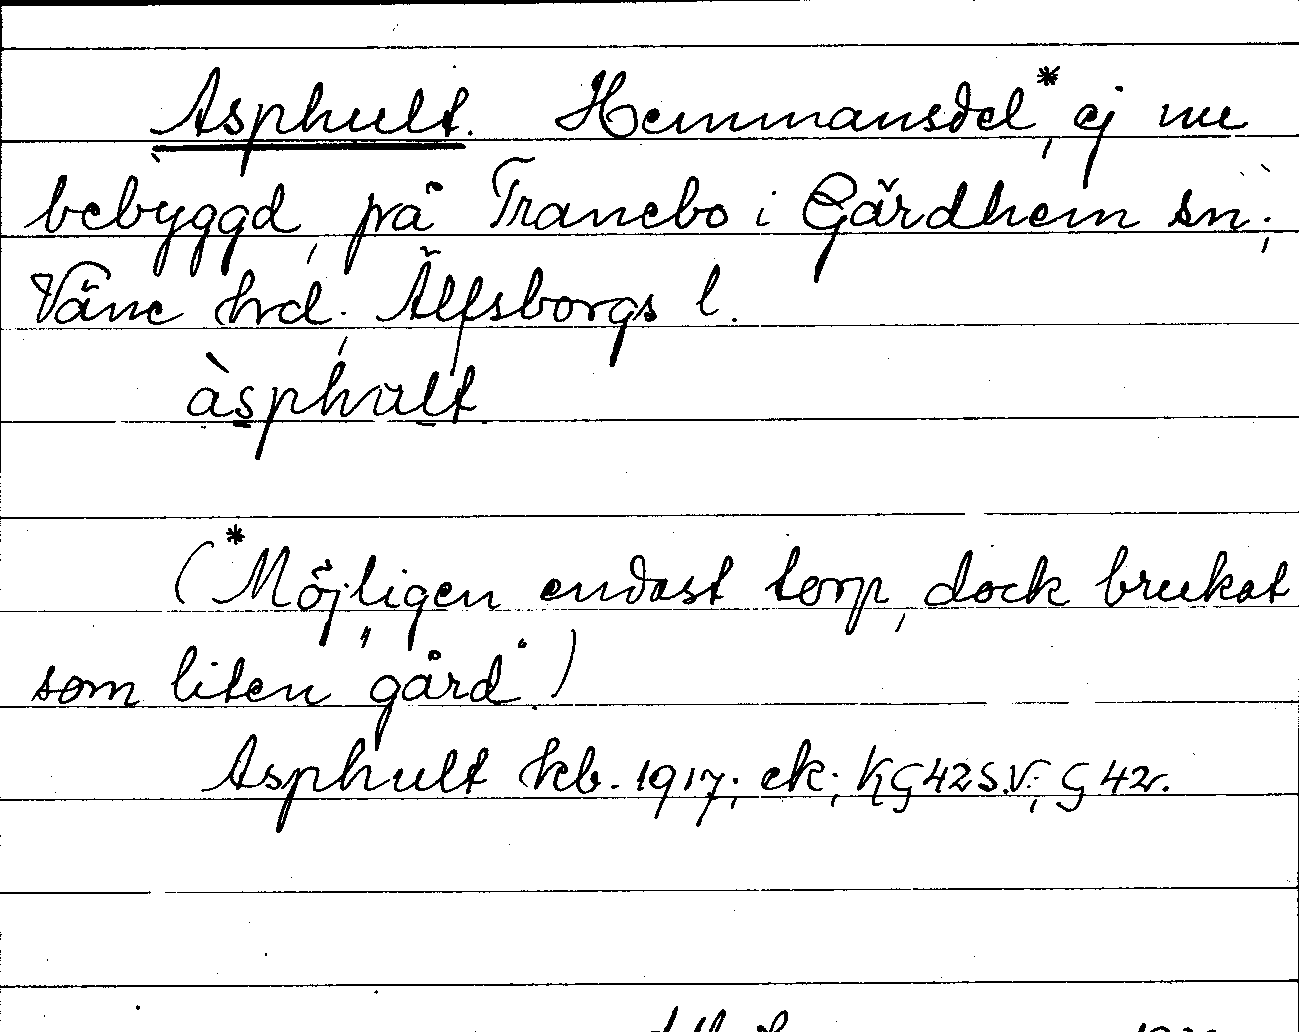 Asphult. Hemmansdel*, ej nu
bebyggd, på Tranebo i Gärdhem sn;
Väne hrd; Älfsborgs l.
àsphult
(*Möjligen endast torp, dock brukat
som liten "gård".)
Asphult kb. 1917; ek; KG 42 S.V.; G 42.